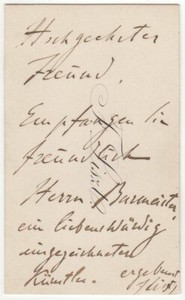 Hochgeehrter
Freund,
Empfangen Sie
freundlich
Herrn Burmeister,
ein liebenswürdig
ausgezeichneten
Künstler. ergebenst
FLiszt